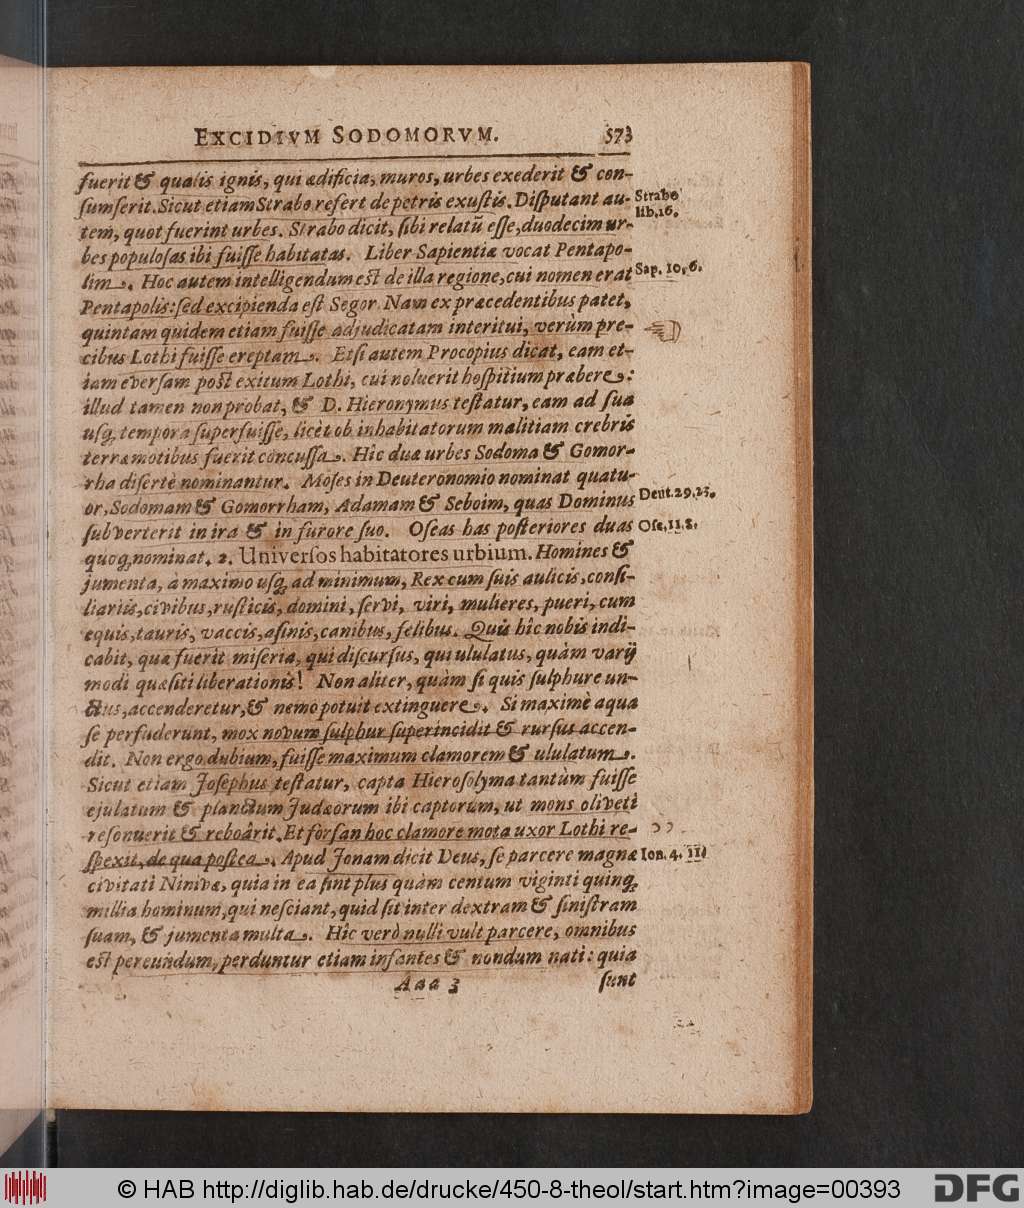 EXCIDIVM SODOMORVM. 573
fuerit & qualis ignis, qui ædificia, muros, urbes exederit & con-
sumserit. Sicut etiam Strabo refert de petris exustis. Disputant au-
Strabo
lib, 16.
tem, quot fuerint urbes. Strabo dicit, sibi relatũ esse, duodecim ur-
bes populosas ibi fuisse habitatas. Liber Sapientiæ vocat Pentapo-
lim. Hoc autem intelligendum est de illa regione, cui nomen erat
Sap. 10, 6.
Pentapolis: sed excipienda est Segor. Nam ex præcedentibus patet,
quintam quidem etiam fuisse adjudicatam interitui, verùm pre-
cibus Lothi fuisse ereptam. Etsi autem Procopius dicat, eam et-
iam eversam post exitum Lothi, cui noluerit hospitium præbere:
illud tamen non probat, & D. Hieronymus testatur, eam ad sua
usq; tempora superfuisse, licèt ob inhabitatorum malitiam crebris
terræ motibus fuerit concussa. Hic duæ urbes Sodoma & Gomor-
rha disertè nominantur. Moses in Deuteronomio nominat quatu-
or, Sodomam & Gomorrham, Adamam & Seboim, quas Dominus
Deut. 29, 23.
subverterit in ira & in furore suo. Oseas has posteriores duas
Ose, 11, 8.
quoq; nominat. 2. Universos habitatores urbium. Homines &
jumenta, à maximo usq; ad minimum, Rex cum suis aulicis, consi-
liariis, civibus, rusticis, domini, servi, viri, mulieres, pueri, cum
equis, tauris, vaccis, asinis, canibus, felibus. Quis hîc nobis indi-
cabit, quæ fuerit miseria, qui discursus, qui ululatus, quàm varij
modi quæsiti liberationis! Non aliter, quàm si quis sulphure un-
ctus, accenderetur, & nemo potuit extinguere. Si maximè aqua
se perfuderunt, mox novum sulphur superincidit & rursus accen-
dit. Non ergo dubium, fuisse maximum clamorem & ululatum.
Sicut etiam Josephus testatur, capta Hierosolyma tantùm fuisse
ejulatum & planctum Judæorum ibi captorum, ut mons oliveti
resonuerit & reboârit. Et fòrsan hoc clamore mota uxor Lothi re-
spexit, de qua postea. Apud Jonam dicit Deus, se parcere magnæ
Ion. 4. 11
civitati Ninivæ, quia in ea sint plus quàm centum viginti quinq;
millia hominum, qui nesciant, quid sit inter dextram & sinistram
suam, & jumenta multa. Hîc verò nulli vult parcere, omnibus
est pereundum, perduntur etiam infantes & nondum nati: quia
Aaa 3 sunt
© HAB http://diglib.hab.de/drucke/450-8-theol/start.htm?image=00393
DFG